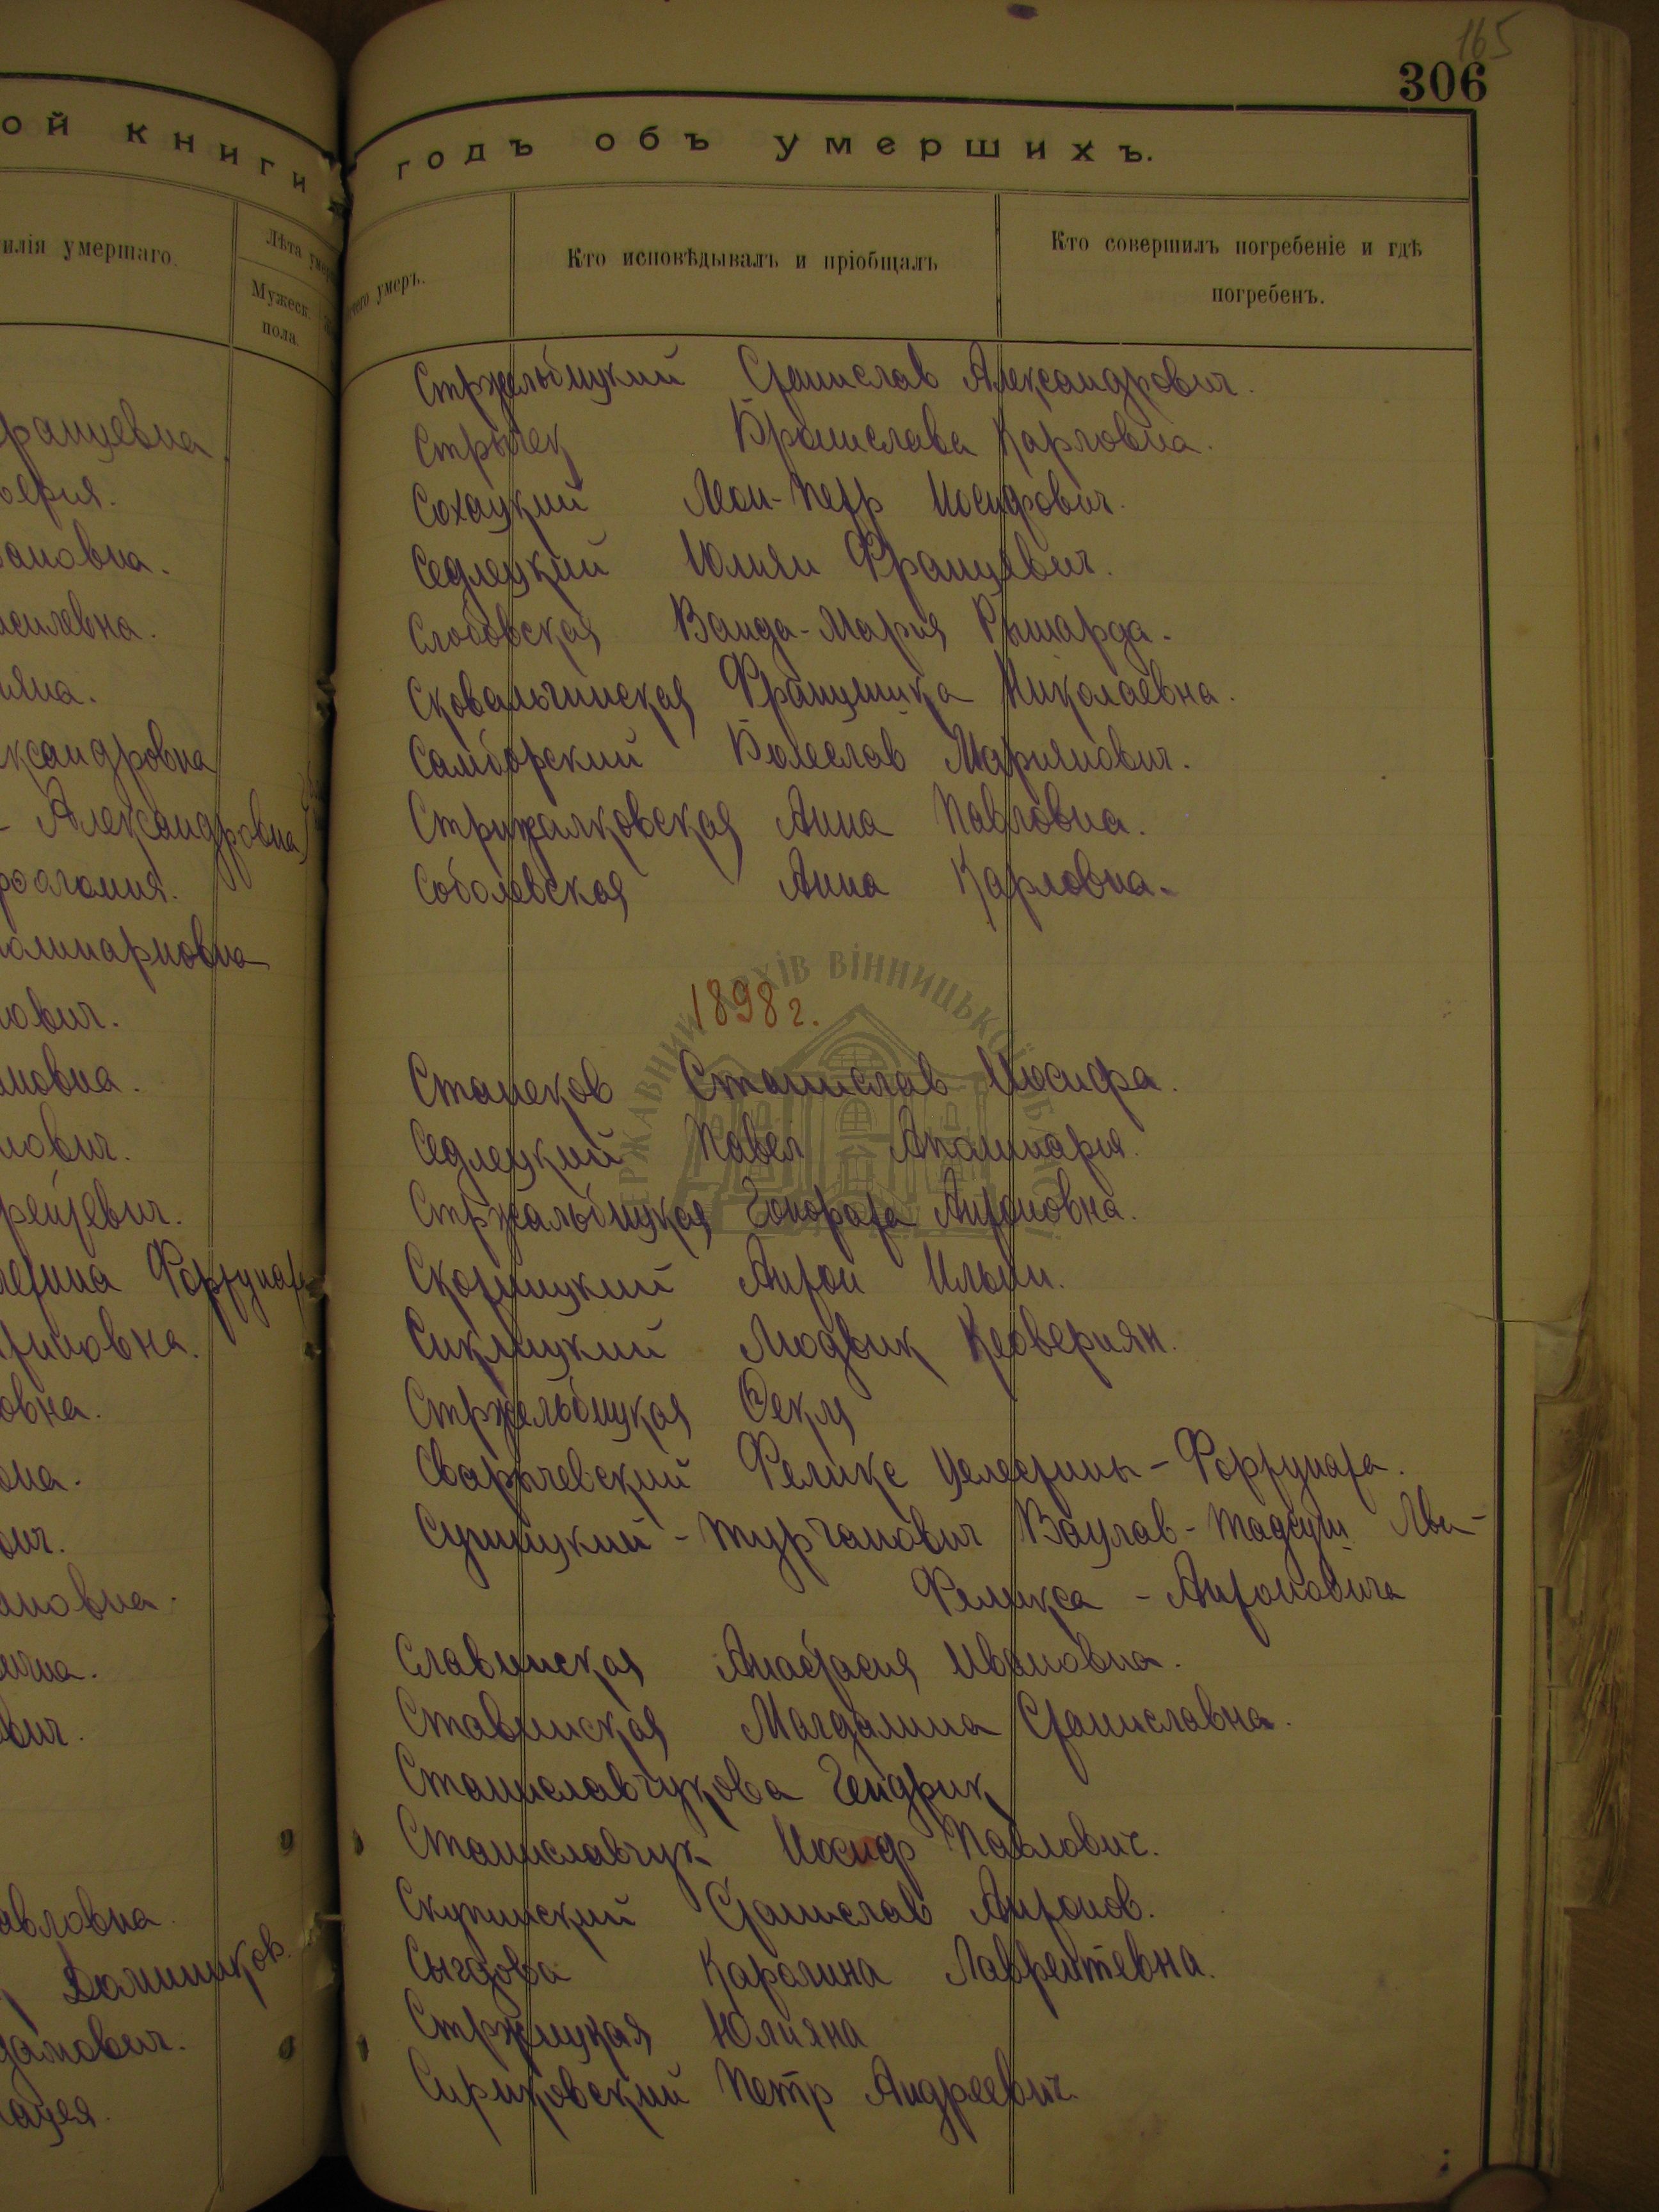 165
306
ой книги
годъ объ умершихъ.
илія умершаго.
Лѣта
Мужеск.
пола.
чего умеръ.
Кто исповѣдывалъ и пріобщалъ
Кто совершилъ погребеніе и гдѣ
погребенъ.
Стржельбицкий Станислав Александрович.
Стрычек Бронислава Карловна.
Сохацкий Леон-Петр Иосифович.
Седлецкий Юлиян Францевич.
Слобовская Ванда-Мария Рышарда.
Сковальчинская Францишка Николаевна.
Самборский Болеслав Мариянович.
Стрижалковская Анна Павловна.
Соболевская Анна Карловна.
1898 г.
Станеков Станислав Иосифа.
Седлецкий Павел Аполинария.
Стржальбицкая Гонората Антоновна.
Скотницкий Антон Ильин.
Сиклицкий Людвик Ксавериян.
Стржельбицкая Фекля
Сварычевский Феликс Целестины-Фортуната.
Сушицкий-Турганович Вацлав-Тадеуш Льва-
Феликса-Антоновича
Славинская Анастасия Ивановна.
Ставинская Магдалина Станиславна.
Станиславчукова Гендрик
Станиславчук Иосиф Павлович.
Скупинский Станислав Антонов.
Сыгдова Каролина Лаврентевна.
Стржицкая Юлияна
Сириковский Петр Андреевич.
ранцевна
ановна.
силевна.
ияна.
ксандровна
- Александровна
олинариовна
ович.
новна.
лович.
рейевич.
Фортуната
тиновна.
овна.
она.
ич.
ановна.
ична.
вич.
авловна.
Домиников.
дамович.
ацея.
ДЕРЖАВНИЙ АРХІВ ВІННИЦЬКОЇ ОБЛАСТІ